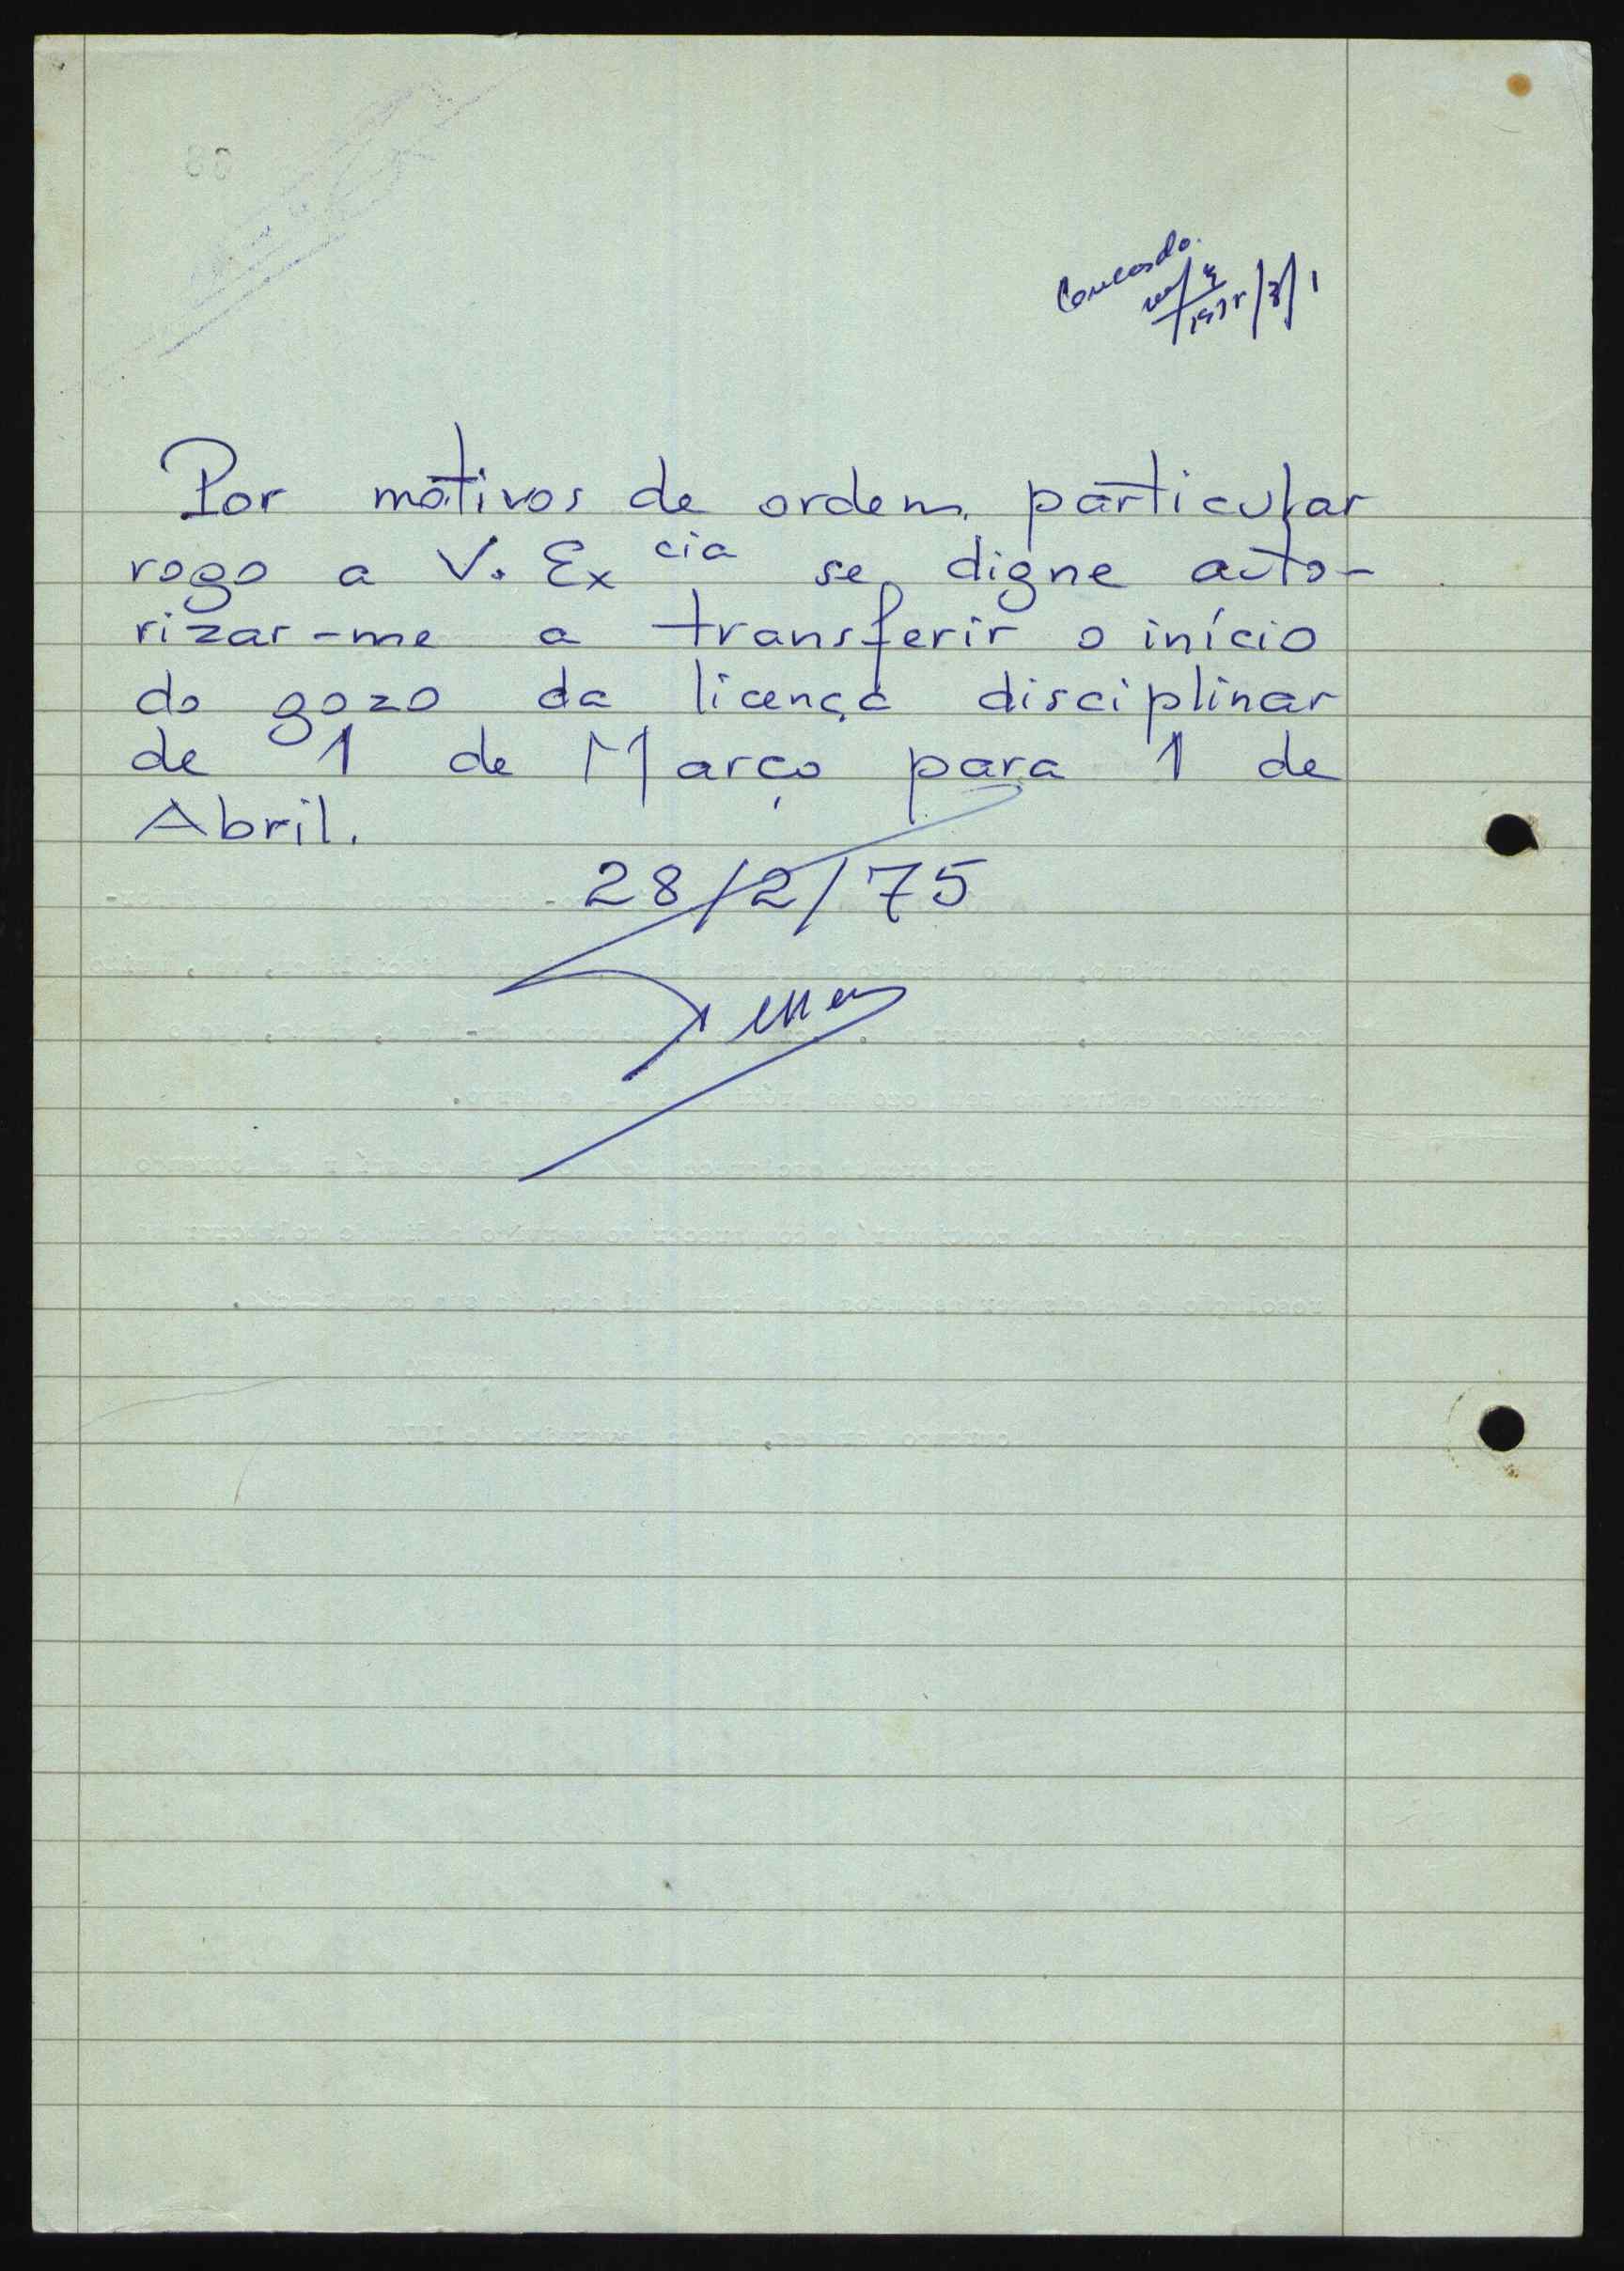 Concordo.
1975/3/1
Por motivos de ordem particular
rogo a V. Ex cia se digne auto-
rizar-me a transferir o início
do gozo da licença disciplinar
de 1 de Março para 1 de
Abril.
28/2/75